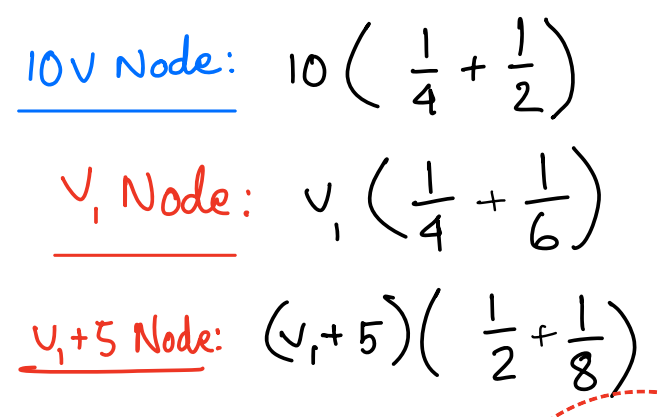 10V Node: 10 ( 1/4 + 1/2 )
V₁ Node: V₁ ( 1/4 + 1/6 )
V₁+5 Node: (V₁+5) ( 1/2 + 1/8 )